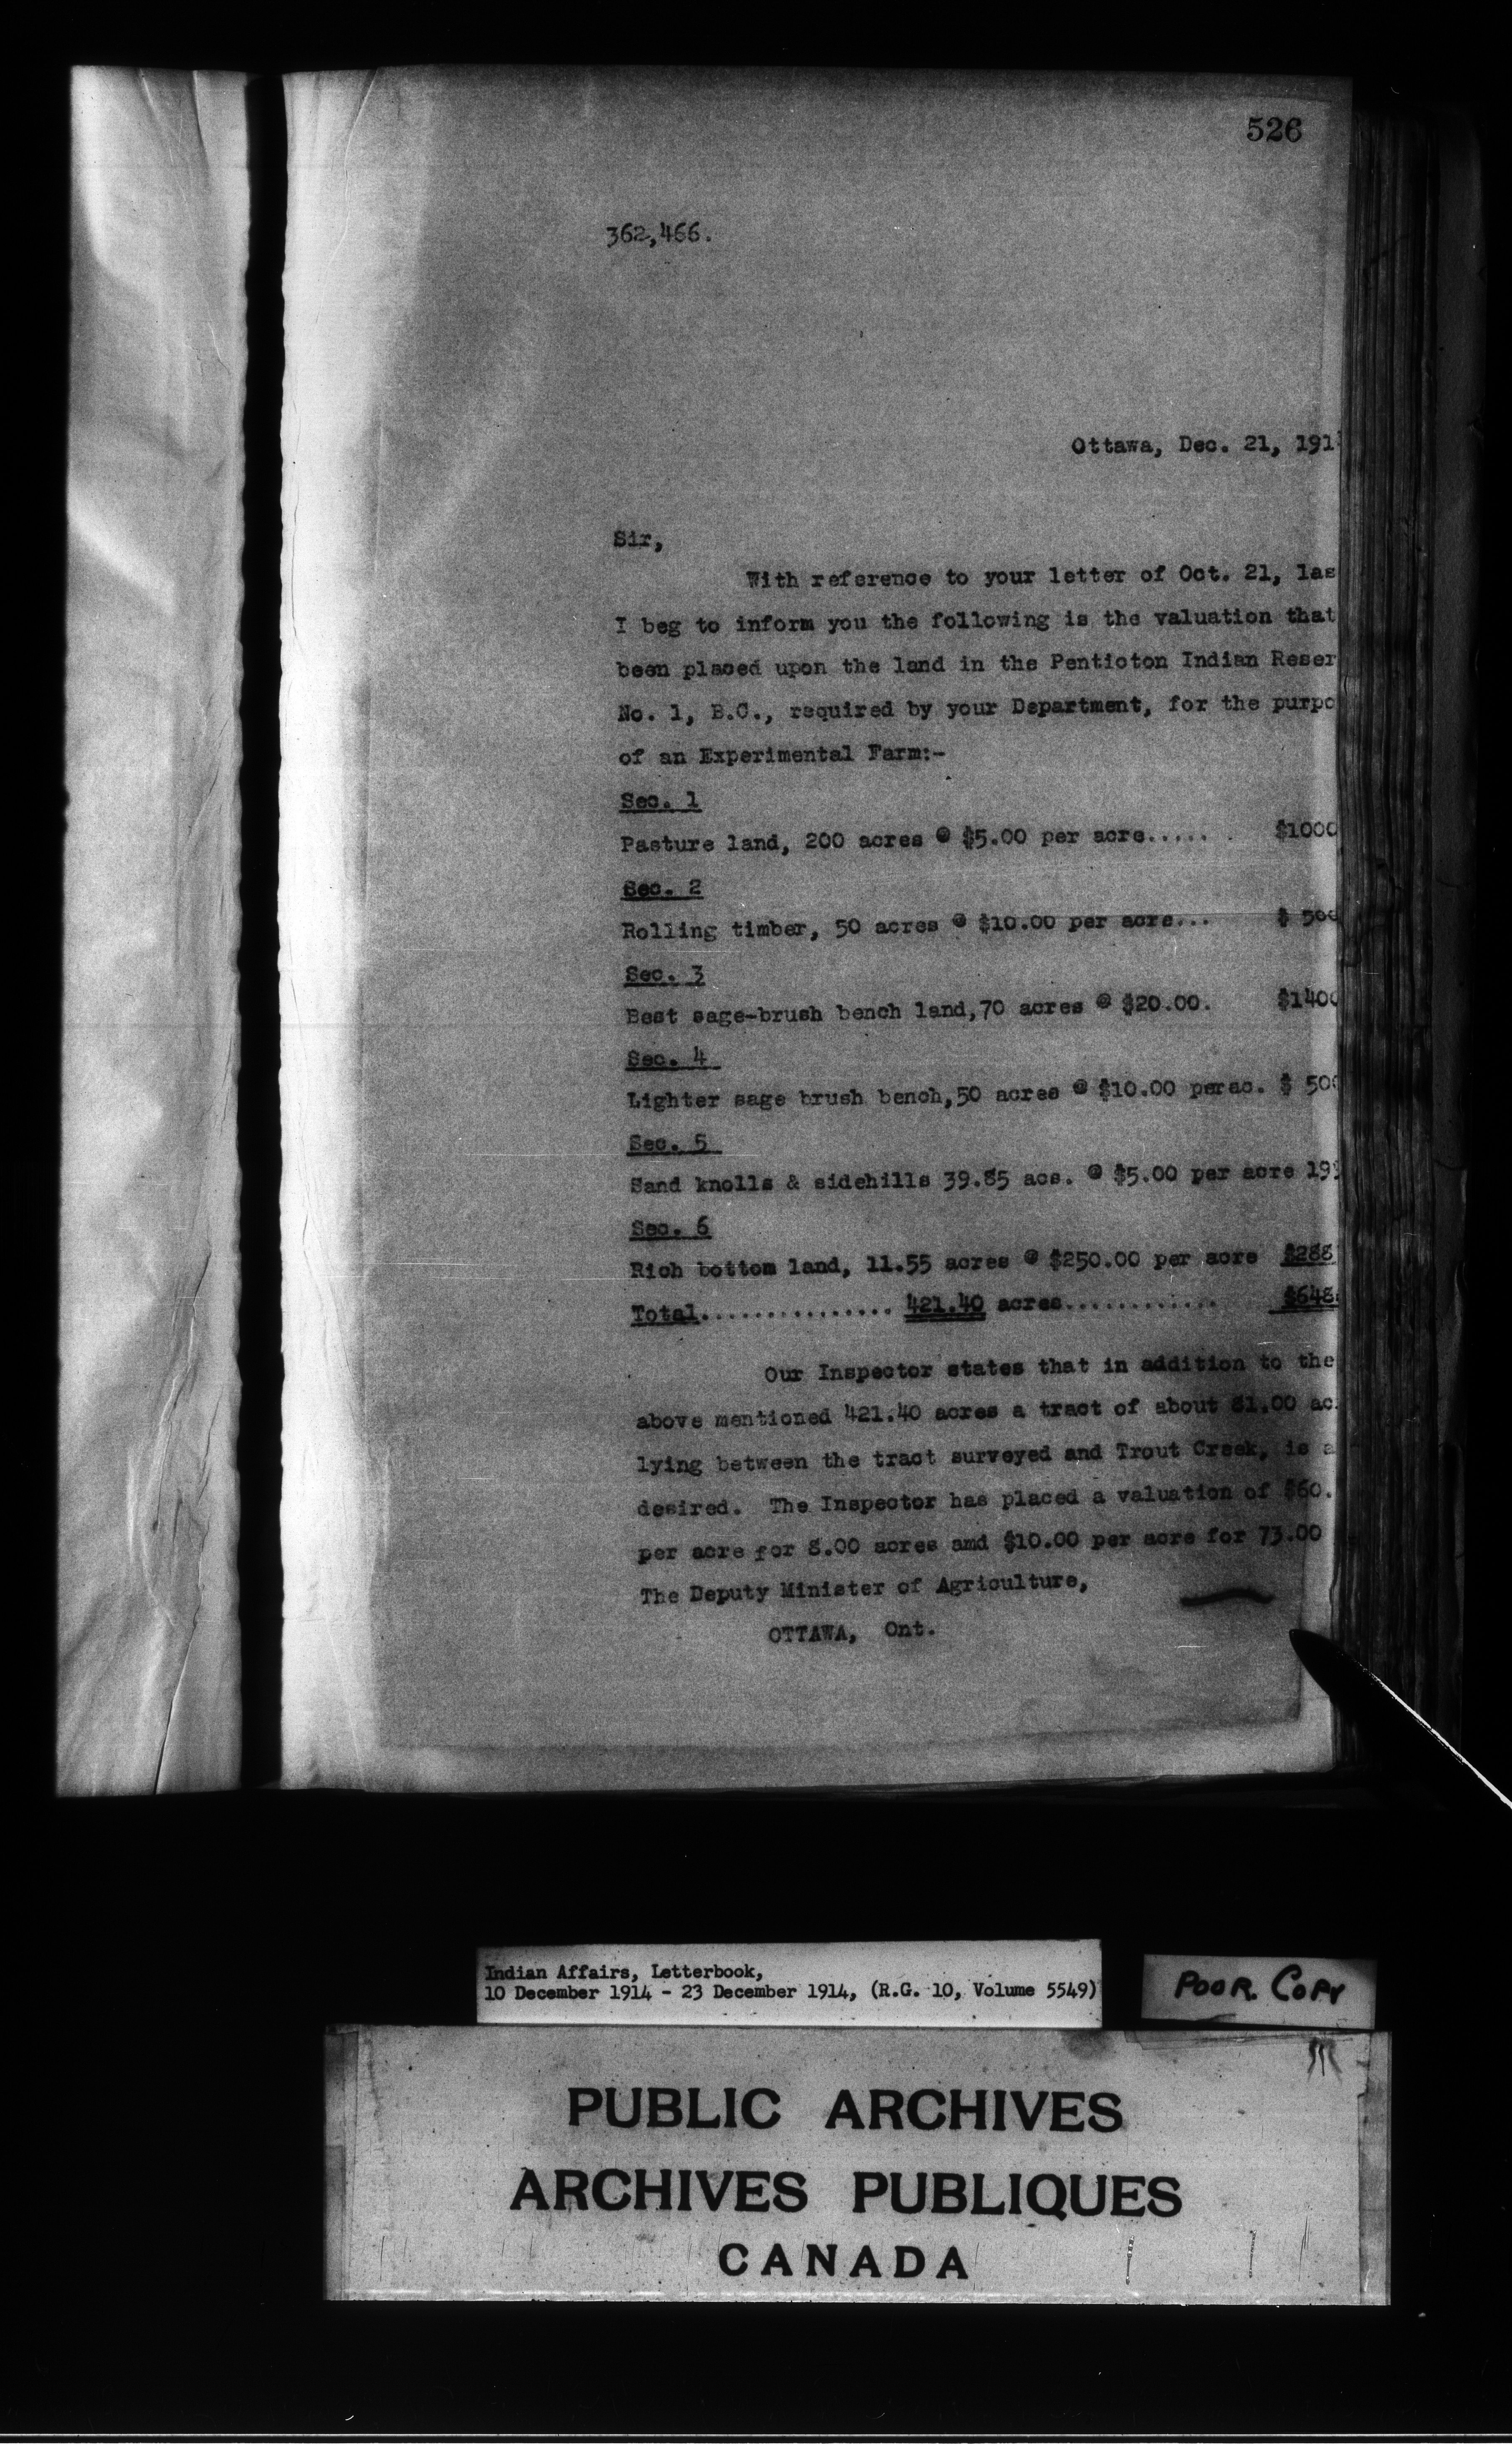 526
362,466.
Ottawa, Dec. 21, 191
Sir,
With reference to your letter of Oct. 21, las
I beg to inform you the following is the valuation that
been placed upon the land in the Penticton Indian Reser
No. 1, B.C., required by your Department, for the purpo
of an Experimental Farm:-
Sec. 1
Pasture land, 200 acres @ $5.00 per acre...... $1000
Sec. 2
Rolling timber, 50 acres @ $10.00 per acre... $ 500
Sec. 3
Best sage-brush bench land,70 acres @ $20.00. $1400
Sec. 4
Lighter sage brush bench,50 acres @ $10.00 perac. $ 500
Sec. 5
Sand knolls & sidehills 39.85 acs. @ $5.00 per acre 199
Sec. 6
Rich bottom land, 11.55 acres @ $250.00 per acre $288
Total............... 421.40 acres............. $648
Our Inspector states that in addition to the
above mentioned 421.40 acres a tract of about 81.00 ac.
lying between the tract surveyed and Trout Creek, is a
desired. The Inspector has placed a valuation of $60.
per acre for 8.00 acres amd $10.00 per acre for 73.00
The Deputy Minister of Agriculture,
OTTAWA, Ont.
Indian Affairs, Letterbook,
10 December 1914 - 23 December 1914, (R.G. 10, Volume 5549)
POOR COPY
PUBLIC ARCHIVES
ARCHIVES PUBLIQUES
CANADA